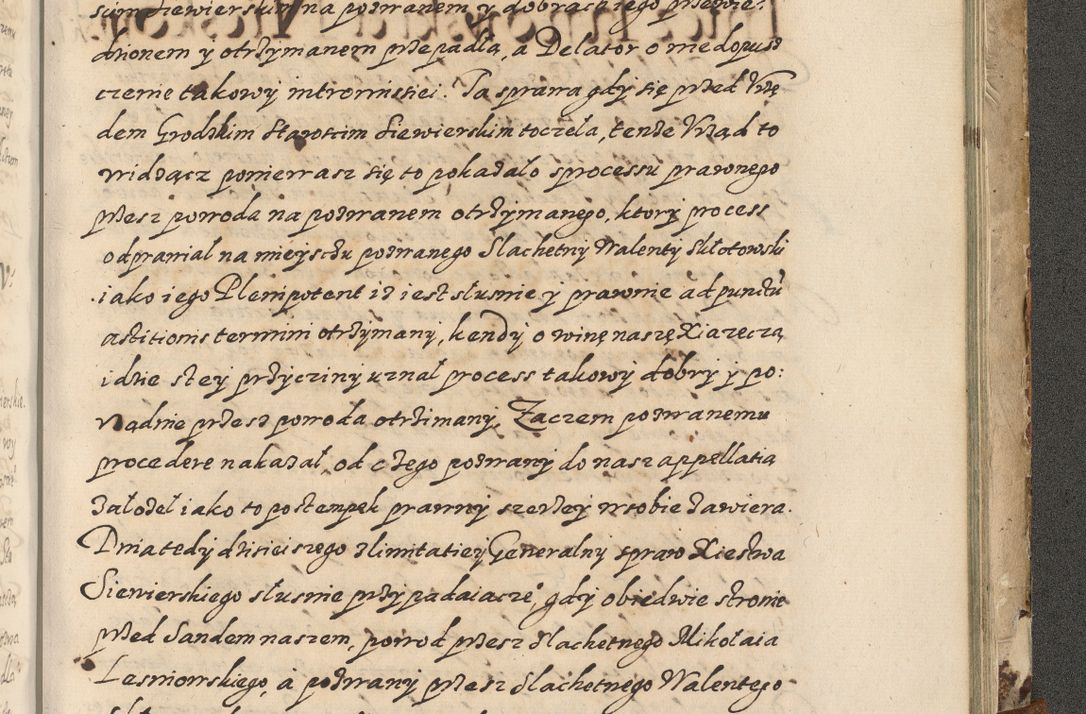 scim Siewierskim na pozwanem y dobrach jego przewie:
dzionem y otrzymanem przepadła, a Delator o niedopusz
czenie takowy intromissiei. Ta sprawa gdy się przed Vrzę
dem Grodzkim Starościm Siewierskim toczela, tenże Vrząd to
widzącz ponieważ się to pokazało sprocessu prawnego
przesz powoda na pozwanem otrzymanego, ktory process
odprawiał na mieyscżu pozwanego Slachetny Walenty Skłotowski
iako iego Plenipotent iż iest slusnie y prawnie ad punctu
astitionis termini otrzymany, kendy o winę naszę Xiązęczą
idzie stey przycziny uznał process takowy dobry y po:
rządnie przesz powoda otrzimany. Zaczem pozwanemu
procedere nakazał, od czego pozwany do nasz appellatią
założeł iako to postempek prawny szerzey wsobie zawiera.
Dnia tedy dzisieiszego zlimitatiey Generalny spraw Xiestwa
Siewierskiego slusnie przypadaiącze, gdy obiedwie stronie
przed Sandem naszem, powod przesz Slachetnego Mikołaia
Lesniowskiego, a pozwany przesz Slachetnego Walentego